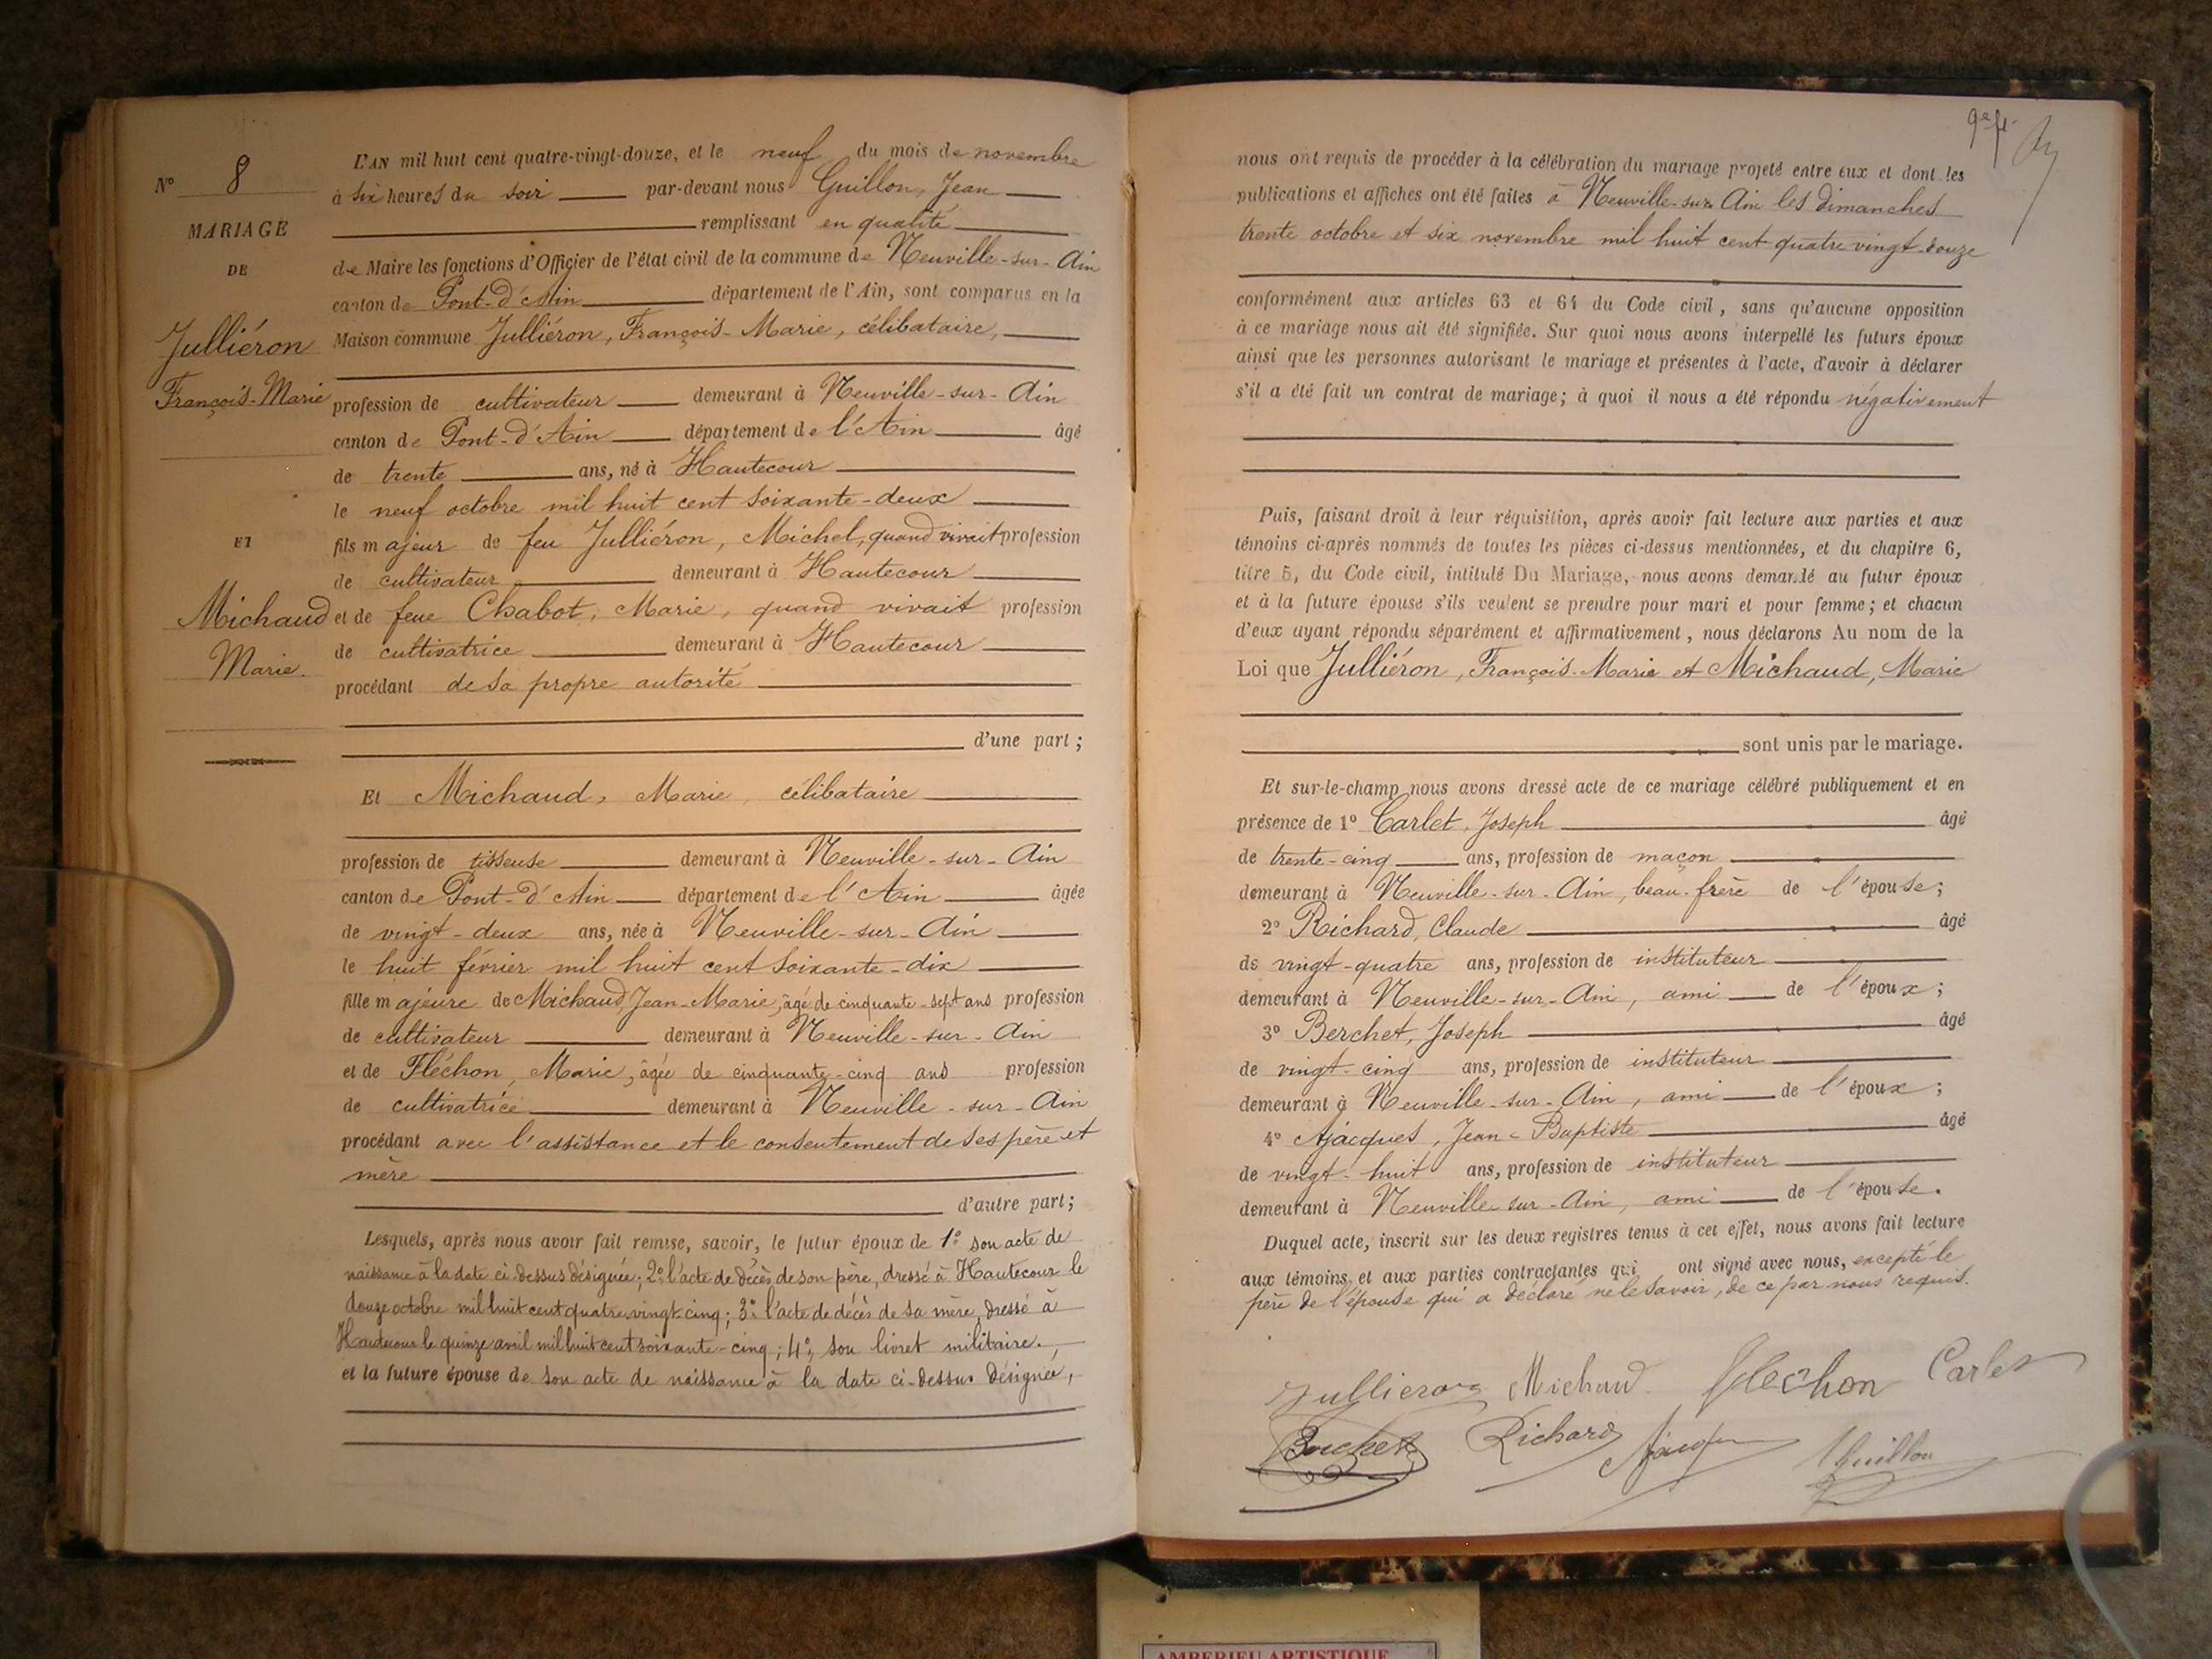 N° 8
MARIAGE
DE
Julliéron
François-Marie
ET
Michaud
Marie.
L'AN mil huit cent quatre-vingt-douze, et le neuf du mois de novembre
à six heures du soir par-devant nous Guillon, Jean
remplissant en qualité
de Maire les fonctions d'Officier de l'état civil de la commune de Neuville-sur-Ain
canton de Pont-d'Ain département de l'Ain, sont comparus en la
Maison commune Julliéron, François-Marie, célibataire,
profession de cultivateur demeurant à Neuville-sur-Ain
canton de Pont-d'Ain département de l'Ain âgé
de trente ans, né à Hautecour
le neuf octobre mil huit cent soixante-deux
fils majeur de feu Julliéron, Michel, quand vivait profession
de cultivateur demeurant à Hautecour
et de feue Chabot, Marie, quand vivait profession
de cultivatrice demeurant à Hautecour
procédant de sa propre autorité
d'une part;
Et Michaud, Marie, célibataire
profession de tisseuse demeurant à Neuville-sur-Ain
canton de Pont-d'Ain département de l'Ain âgée
de vingt-deux ans, née à Neuville-sur-Ain
le huit février mil huit cent soixante-dix
fille majeure de Michaud Jean-Marie, âgé de cinquante-sept ans profession
de cultivateur demeurant à Neuville-sur-Ain
et de Fléchon, Marie, âgée de cinquante-cinq ans profession
de cultivatrice demeurant à Neuville-sur-Ain
procédant avec l'assistance et le consentement de ses père et
mère
d'autre part;
Lesquels, après nous avoir fait remise, savoir, le futur époux de 1° son acte de
naissance à la date ci-dessus désignée; 2° l'acte de décès de son père, dressé à Hautecour le
douze octobre mil huit cent quatre-vingt-cinq; 3° l'acte de décès de sa mère, dressé à
Hautecour le quinze avril mil huit cent soixante-cinq; 4°, son livret militaire.,
et la future épouse de son acte de naissance à la date ci-dessus désignée,
9e ft
nous ont requis de procéder à la célébration du mariage projeté entre eux et dont les
publications et affiches ont été faites à Neuville-sur-Ain les dimanches
trente octobre et six novembre mil huit cent quatre vingt-douze
conformément aux articles 63 et 64 du Code civil, sans qu'aucune opposition
à ce mariage nous ait été signifiée. Sur quoi nous avons interpellé les futurs époux
ainsi que les personnes autorisant le mariage et présentes à l'acte, d'avoir à déclarer
s'il a été fait un contrat de mariage; à quoi il nous a été répondu négativement
Puis, faisant droit à leur réquisition, après avoir fait lecture aux parties et aux
témoins ci-après nommés de toutes les pièces ci-dessus mentionnées, et du chapitre 6,
titre 5, du Code civil, intitulé Du Mariage, nous avons demandé au futur époux
et à la future épouse s'ils veulent se prendre pour mari et pour femme; et chacun
d'eux ayant répondu séparément et affirmativement, nous déclarons Au nom de la
Loi que Julliéron, François-Marie et Michaud, Marie
sont unis par le mariage.
Et sur-le-champ nous avons dressé acte de ce mariage célébré publiquement et en
présence de 1° Carlet, Joseph âgé
de trente-cinq ans, profession de maçon
demeurant à Neuville-sur-Ain, beau-frère de l'épouse;
2° Richard, Claude âgé
de vingt-quatre ans, profession de instituteur
demeurant à Neuville-sur-Ain, ami de l'époux;
3° Berchet, Joseph âgé
de vingt-cinq ans, profession de instituteur
demeurant à Neuville-sur-Ain, ami de l'époux;
4° Ajacques, Jean-Baptiste âgé
de vingt-huit ans, profession de instituteur
demeurant à Neuville-sur-Ain, ami de l'épouse.
Duquel acte, inscrit sur les deux registres tenus à cet effet, nous avons fait lecture
aux témoins, et aux parties contractantes qui ont signé avec nous, excepté le
père de l'épouse qui a déclaré ne le savoir, de ce par nous requis.
Jullieron Michaud. Flechon Carlet
Berchet Richard Ajacques Guillon
AMBERIEU ARTISTIQUE